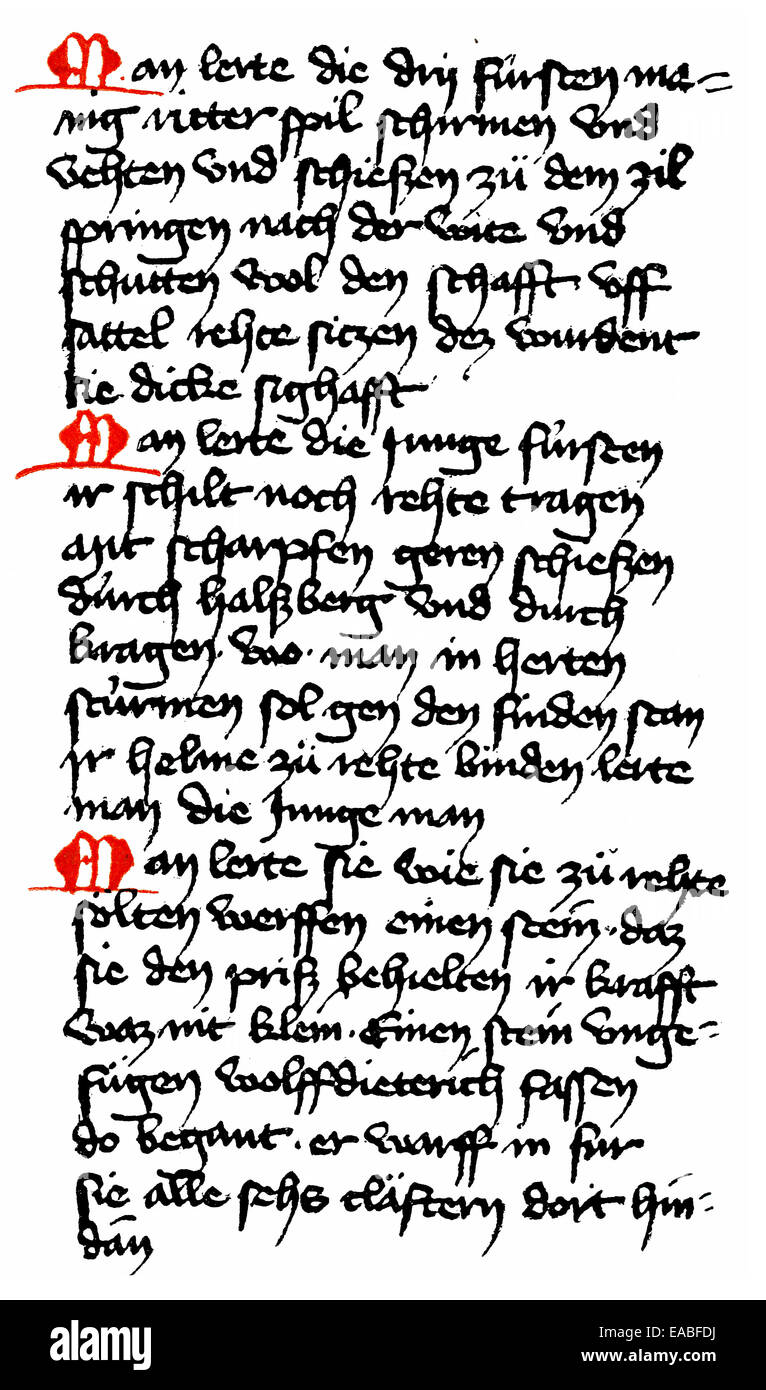 Man lerte die drij fürsten ma=
nig ritter spil schirmen vnd
vehten vnd schieſzen zü dem zil
springen nach der wite vnd
schutten wol den schafft vff
sattel rehte sitzen dez wurdent
sie dicke sighafft
Man lerte die Junge fürsten
ir schilt noch rehte tragen
Mit scharpfen geren schieſzen
dürch halſzberg vnd durch
kragen · wo · man in herten
stürmen sol gen den finden stan
ir helme zü rehte binden lerte
man die Junge man
Man lerte sie wie sie zü rehte
solten werffen einen stein · daz
sie den priſz behielten ir krafft
waz nit klein · Einen stein vnge=
fügen wolffdieterich fassen
do begant · er warff in fur
sie alle sehs cläftern dort hin=
dan
alamy
Image ID: EABFDJ
www.alamy.com